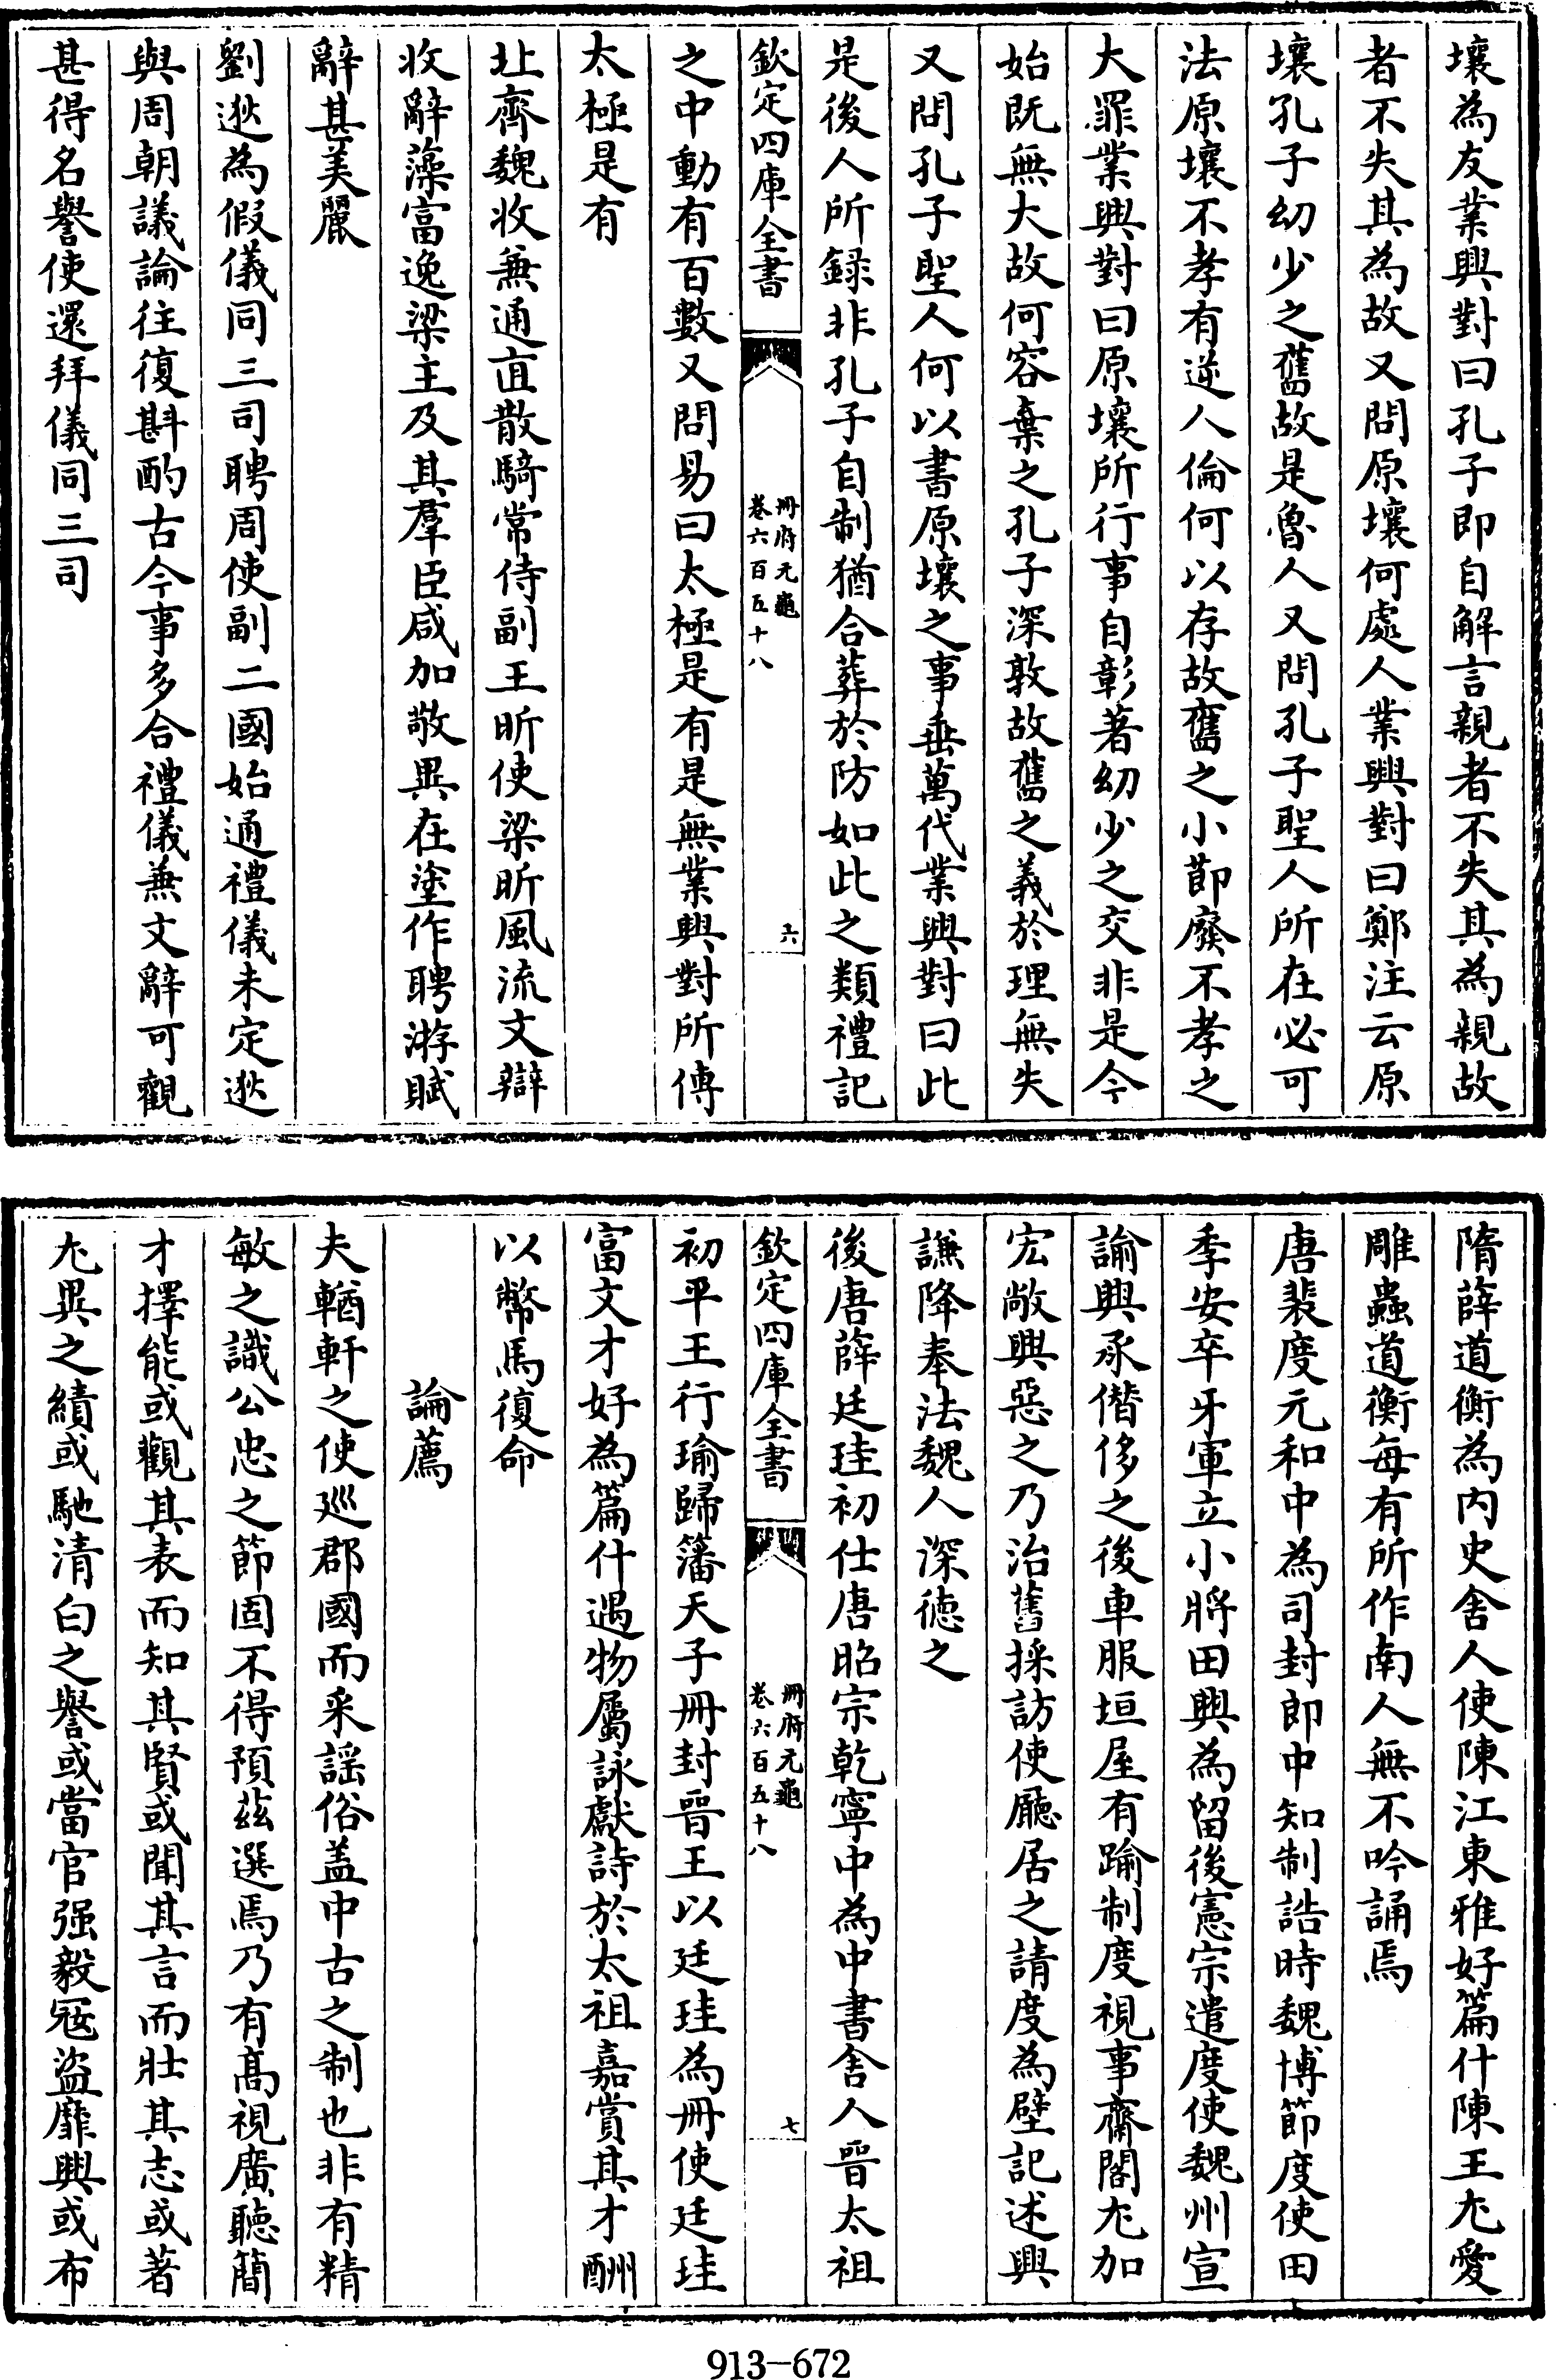 壤為友業興對曰孔子即自解言親者不失其為親故
者不失其為故又問原壤何處人業興對曰鄭注云原
壤孔子幼少之舊故是魯人又問孔子聖人所在必可
法原壤不孝有逆人倫何以存故舊之小節廢不孝之
大罪業興對曰原壤所行事自彰著幼少之交非是今
始既無大故何容棄之孔子深敦故舊之義於理無失
又問孔子聖人何以書原壤之事垂萬代業興對曰此
是後人所録非孔子自制猶合葬於防如此之類禮記
欽定四庫全書
冊府元龜
卷六百五十八
六
之中動有百數又問易曰太極是有是無業興對所傳
太極是有
北齊魏收兼通直散騎常侍副王昕使梁昕風流文辯
收辭藻富逸梁主及其羣臣咸加敬異在塗作聘游賦
辭甚美麗
劉逖為假儀同三司聘周使副二國始通禮儀未定逖
與周朝議論往復斟酌古今事多合禮儀兼文辭可觀
甚得名譽使還拜儀同三司
隋薛道衡為内史舍人使陳江東雅好篇什陳王尤愛
雕蟲道衡每有所作南人無不吟誦焉
唐裴度元和中為司封郎中知制誥時魏博節度使田
季安卒牙軍立小將田興為留後憲宗遣度使魏州宣
諭興承僭侈之後車服垣屋有踰制度視事齋閤尤加
宏敞興惡之乃治舊採訪使廳居之請度為壁記述興
謙降奉法魏人深德之
後唐薛廷珪初仕唐昭宗乾寧中為中書舍人晉太祖
欽定四庫全書
冊府元龜
卷六百五十八
七
初平王行瑜歸籓天子冊封晉王以廷珪為冊使廷珪
富文才好為篇什遇物屬詠獻詩於太祖嘉賞其才酬
以幣馬復命
論薦
夫輶軒之使廵郡國而采謡俗盖中古之制也非有精
敏之識公忠之節固不得預兹選焉乃有髙視廣聽簡
才擇能或觀其表而知其賢或聞其言而壯其志或著
尤異之績或馳清白之譽或當官强毅冦盜靡興或布
913-672